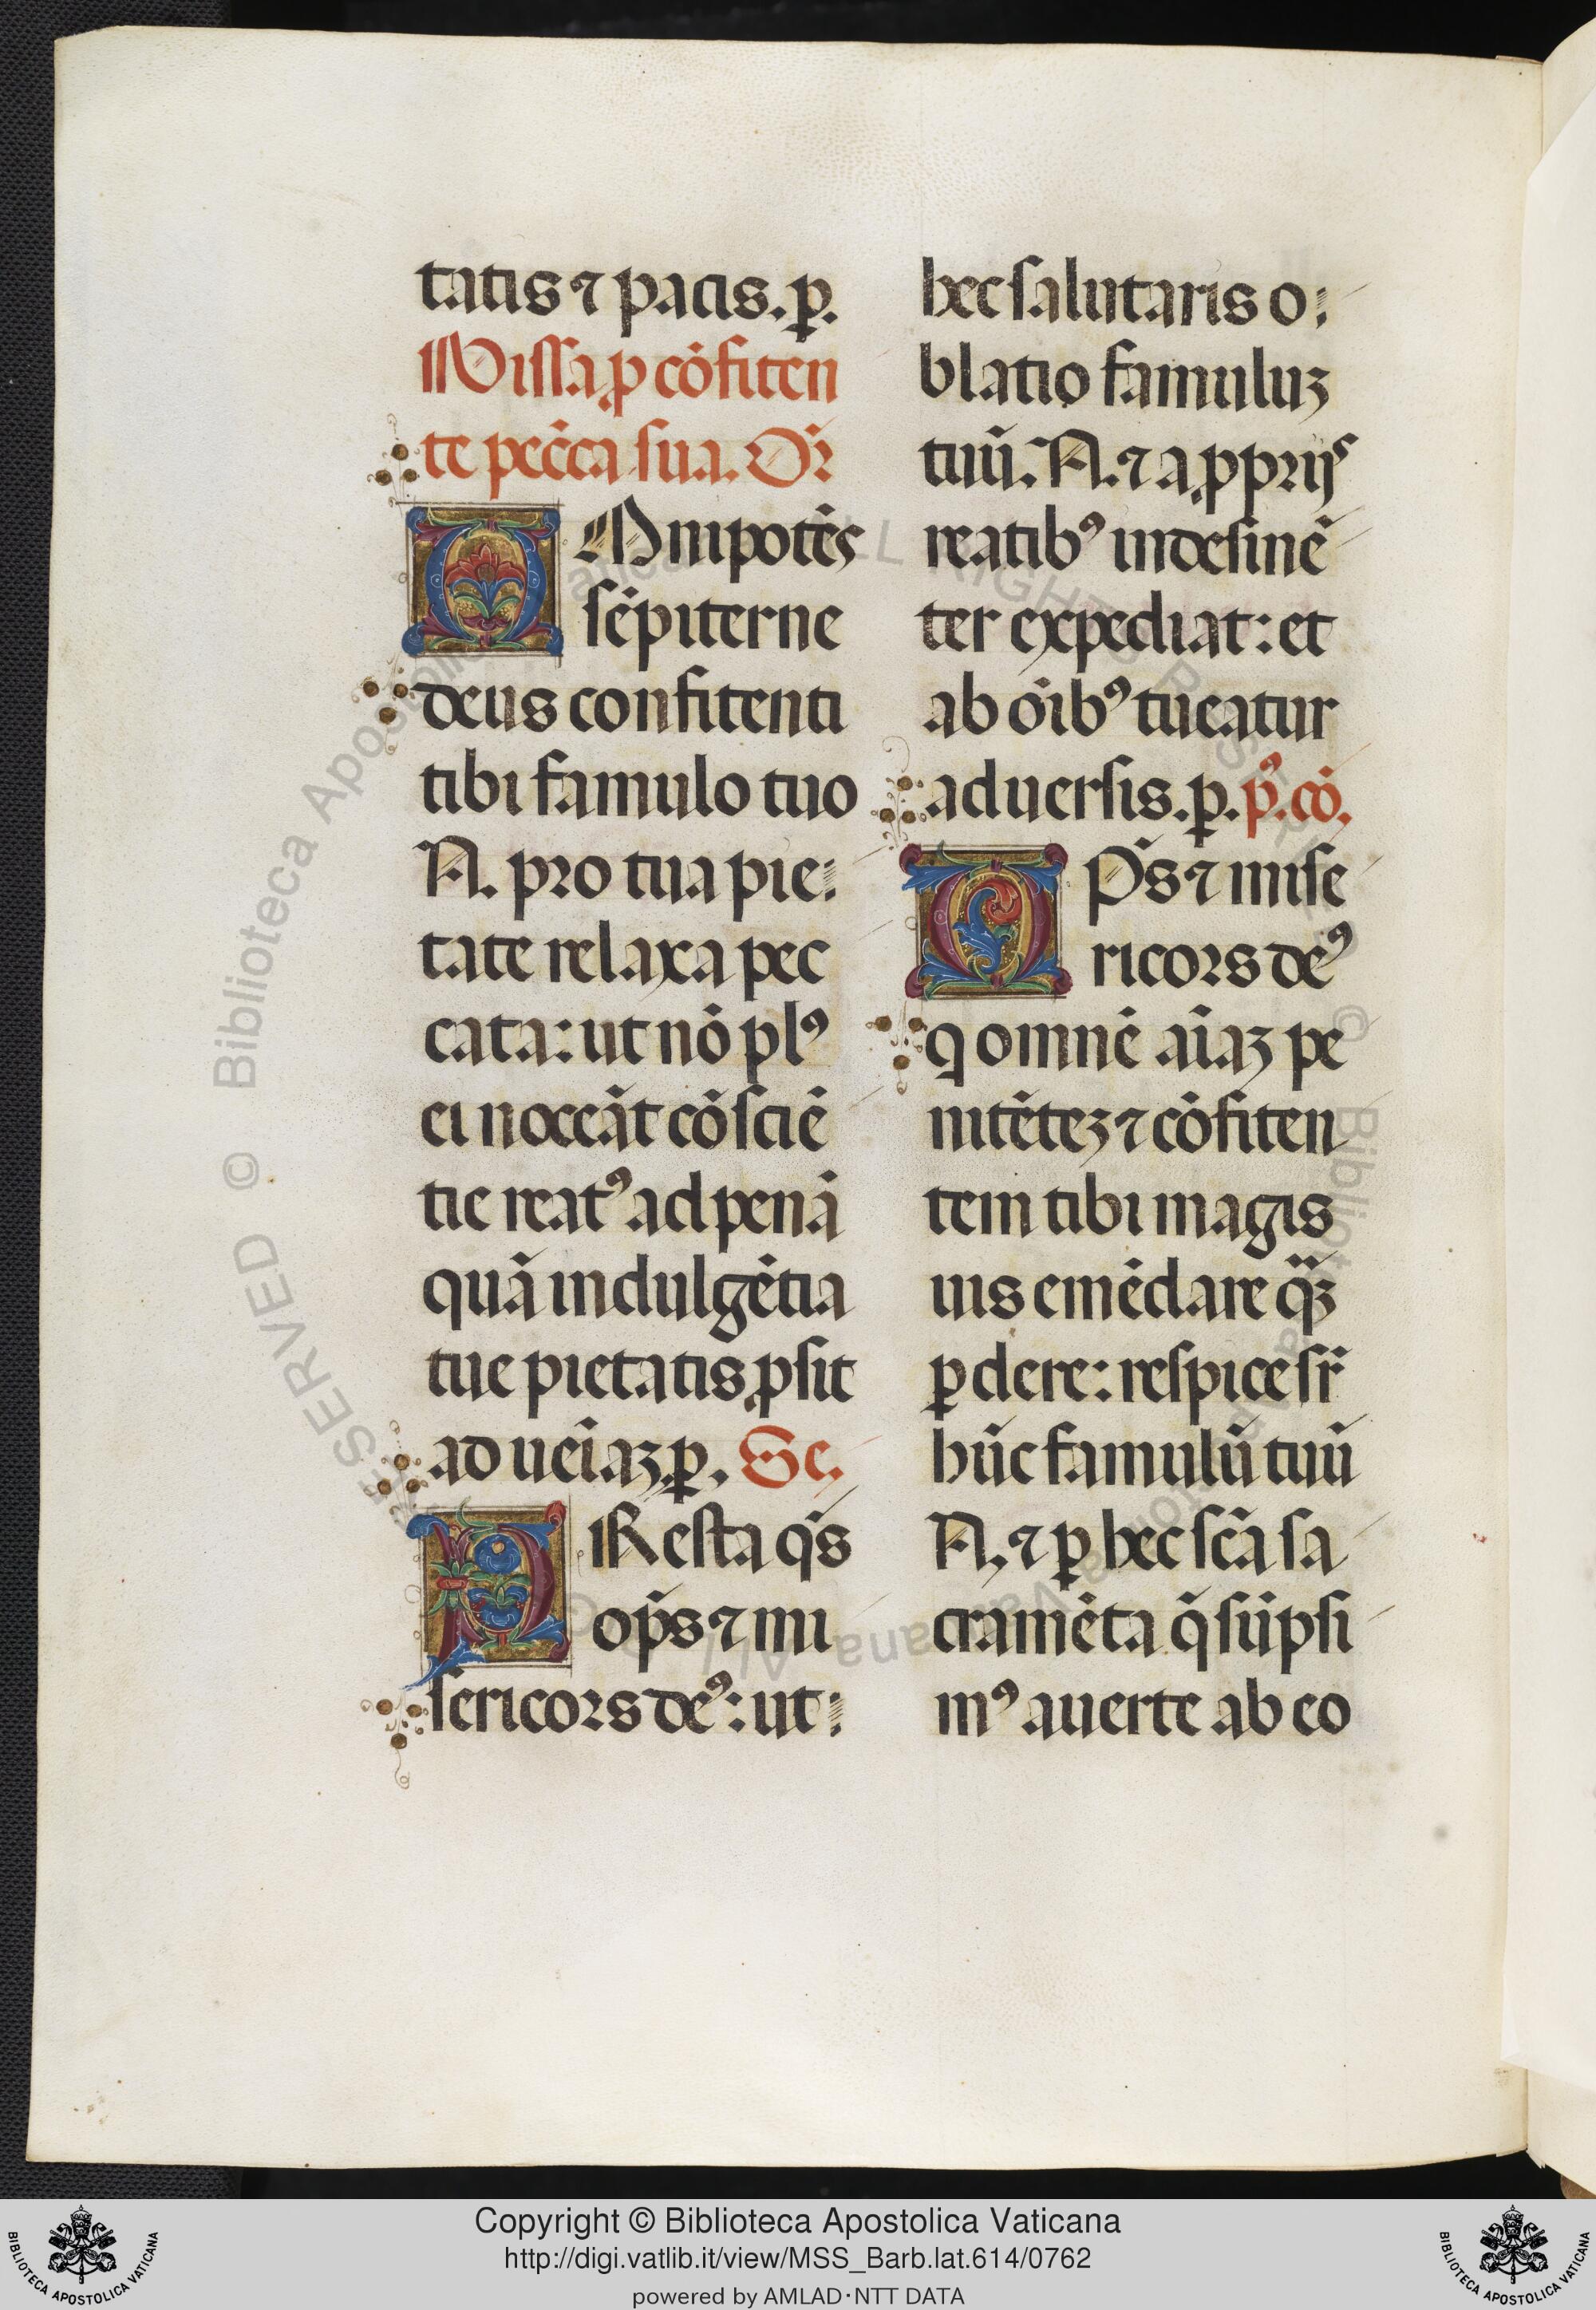 tatis ⁊ pacis. ꝑ.
Missa ꝓ cōfiten
te pecc̄a sua. Or̄
OMnipotēs
sēpiterne
deus confitenti
tibi famulo tuo
N. pro tua pie:
tate relaxa pec
cata: ut nō plꝰ
ei noceāt cōsciē
tie reatꝰ ad penā
quā indulgētia
tue pietatis ꝓsit
ad ueīaꝫ. ꝑ. Se.
PREsta q̄s
op̄s ⁊ mi
sericors deꝰ: ut:
hec salutaris o:
blatio famuluꝫ
tuū. N. ⁊ a ꝓprijs
reatibꝰ indesinē
ter expediat: et
ab oībꝰ tueatur
aduersis. ꝑ. p̄. cō.
OP̄s ⁊ mise
ricors deꝰ
q omnē aīaꝫ pe
nitēteꝫ ⁊ cōfiten
tem tibi magis
uis emēdare q̄ꝫ
ꝑdere: respice sr̄
hūc famulū tuū
N. ⁊ ꝑ hec sc̄a sa
cramēta q̄ sūpsi
mꝰ auerte ab eo
Copyright © Biblioteca Apostolica Vaticana
http://digi.vatlib.it/view/MSS_Barb.lat.614/0762
powered by AMLAD·NTT DATA
BIBLIOTECA APOSTOLICA VATICANA
BIBLIOTECA APOSTOLICA VATICANA